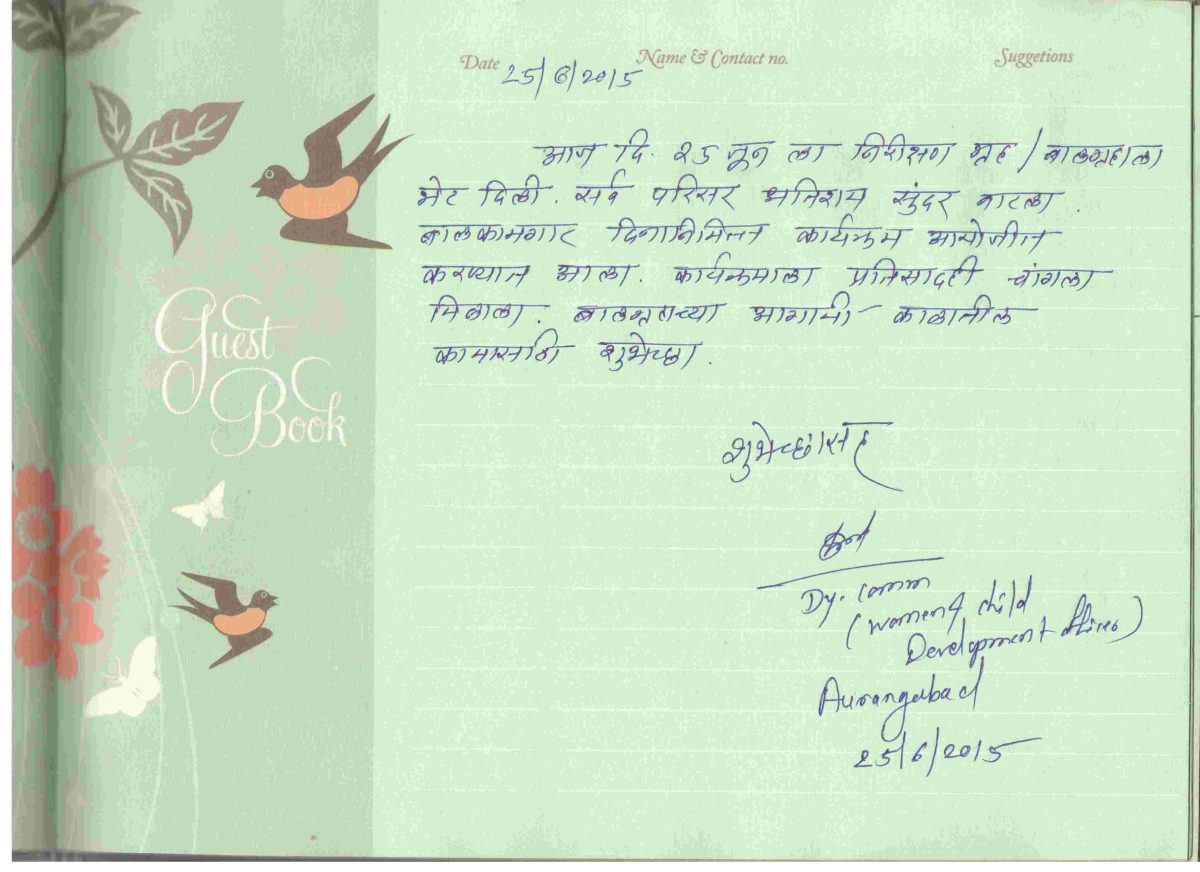 Date
Name & Contact no.
Suggetions
25/6/2015
आज दि. २५ जून ला निरीक्षण गृह / बालगृहाला
भेट दिली. सर्व परिसर अतिशय सुंदर वाटला.
बालकामगार दिनानिमित्त कार्यक्रम आयोजीत
करण्यात आला. कार्यक्रमाला प्रतिसादही चांगला
मिळाला. बालगृहाच्या आगामी काळातील
कामासाठी शुभेच्छा.
शुभेच्छांसह
Dy. Comm
(Women & child
Development officer)
Aurangabad
25/6/2015
Guest
Book